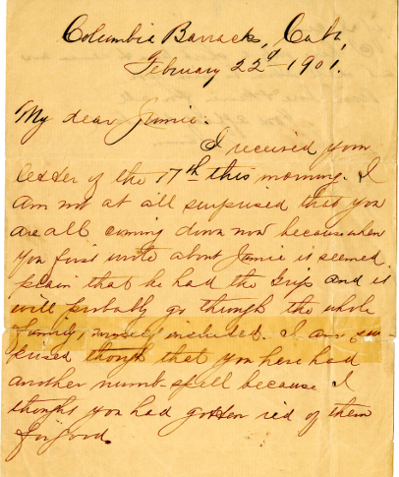 Columbia Barracks, Cuba,
February 22d 1901.
My dear Jimmie:
I received your
letter of the 17th this morning. I
am not at all surprised that you
are all coming down now because when
you first wrote about Jamie is seemed
plain that he had the Grip and it
will probably go through the whole
family, included. I am sur
prised though that you have had
another numb-spell because I
thought you had gotten rid of them
for good.